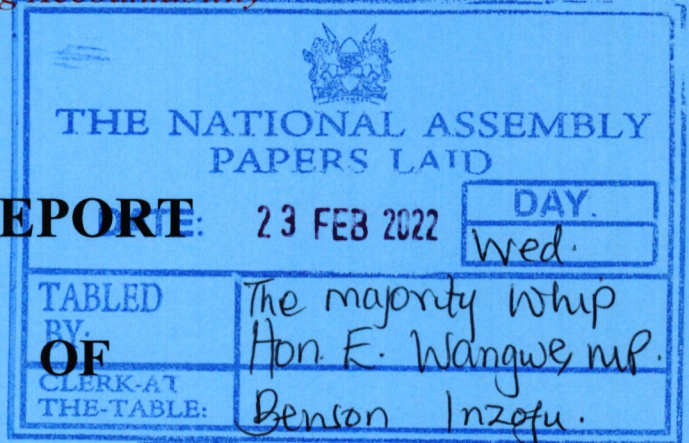 THE NATIONAL ASSEMBLY
PAPERS LAID
EPORT
DATE: 23 FEB 2022
DAY.
Wed.
TABLED BY:
The majority Whip
Hon. E. Wangwe, MP.
OF
CLERK-AT THE-TABLE:
Benson Inzofu.